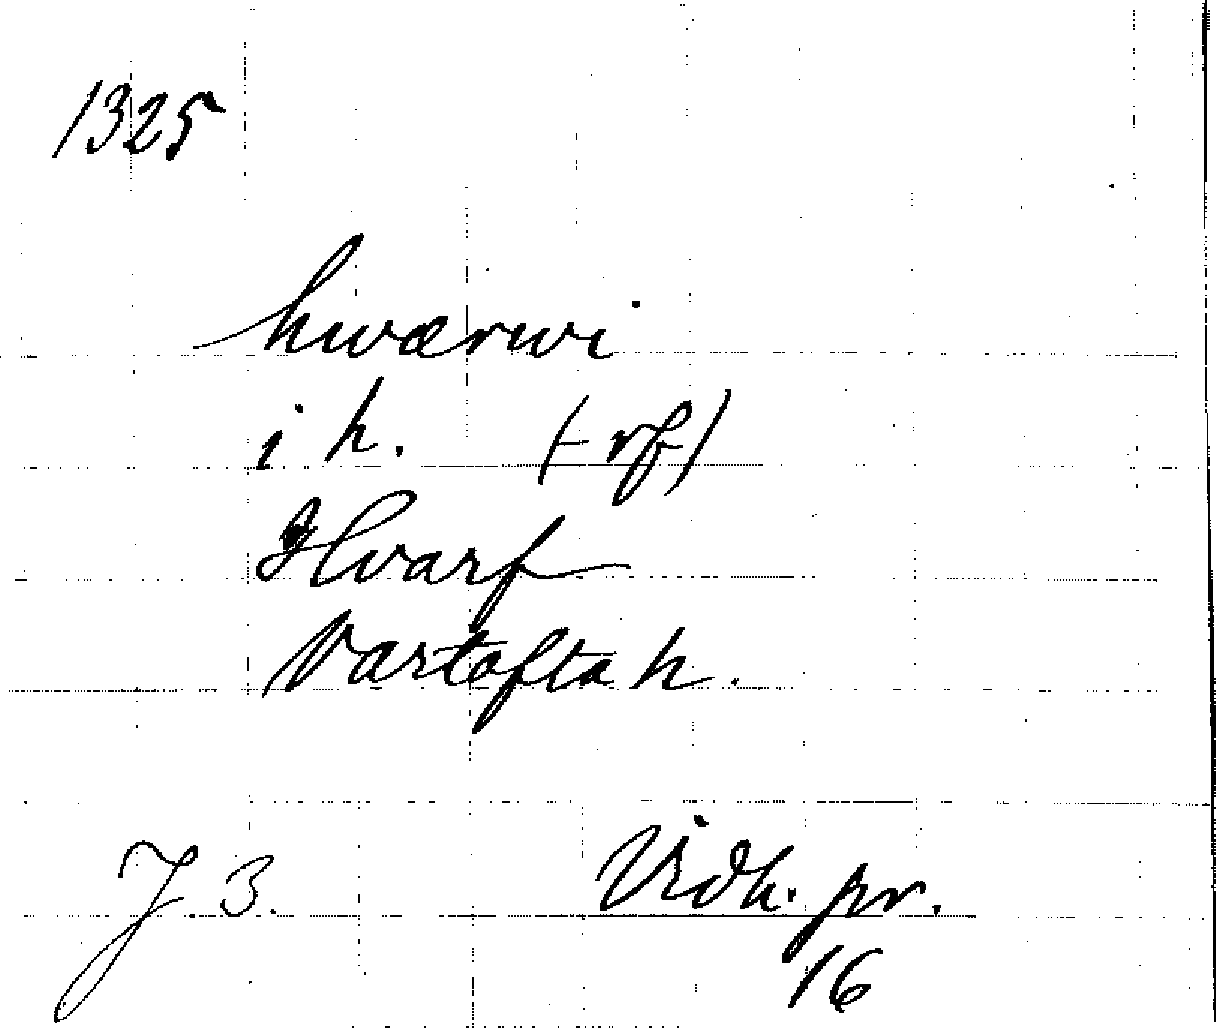 1325
hwærwi
i h. (-rf)
Hvarf
Vartofta h.
J. 3. Vidh. pr.
16